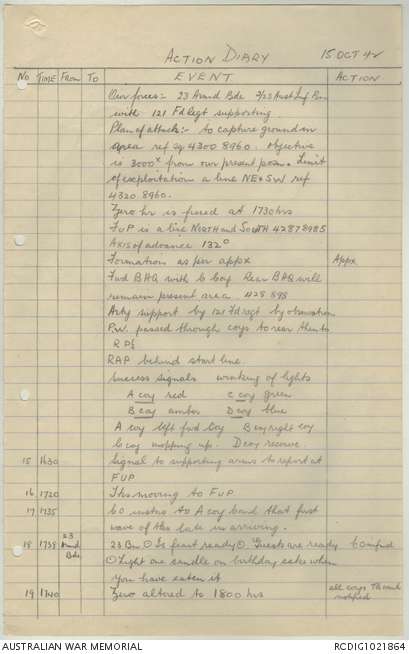 ACTION DIARY 15 OCT 42
No. TIME FROM TO EVENT ACTION
Own forces:- 23 Armd Bde 2/23 Aust Inf Bn
with 121 Fd Regt supporting
Plan of attack:- to capture ground in
area ref sq 4300 8960. Objective
is 3000x from our present posn. Limit
of exploitation a line NE & SW ref
4320 8960.
Zero hr is fixed at 1730 hrs
FUP is a line NORTH and SOUTH 42878985
Axis of advance 132°
Formation as per appx Appx
Fwd BHQ with C Coy Rear BHQ will
remain present area 428 898
Arty support by 121 Fd regt by observation
P.W. passed through coys to rear thence
RAP behind start line.
Success signals winking of lights
A coy red C coy green
B coy amber D coy blue
A coy left fwd Coy B coy right coy
C coy mopping up. D coy reserve.
15 1630 Signal to supporting arms to report at
FUP
16 1720 Tks moving to FUP.
17 1735 CO to A coy that first
wave of tks late in arriving.
18 1738 23 Armd Bde 23 Bn Is feast ready. Guests are ready
Light one candle on birthday cake when
you have eaten it
19 1740 Zero altered to 1800 hrs all coys notified
AUSTRALIAN WAR MEMORIAL RCDIG1021864